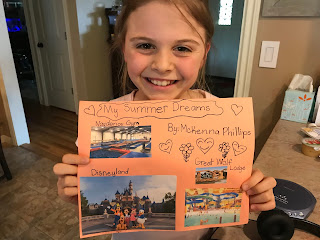 My Summer Dreams
By: McKenna Phillips
Naydenov Gym
Great Wolf
Lodge
Disneyland